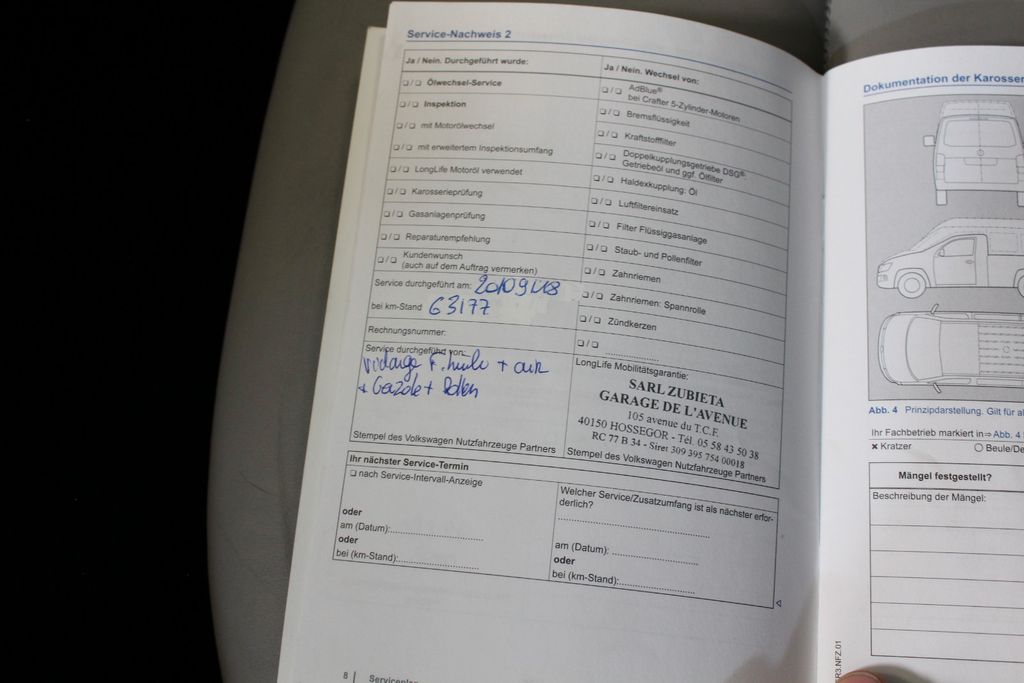 Service-Nachweis 2
Ja / Nein. Durchgeführt wurde:
❏ / ❏ Ölwechsel-Service
❏ / ❏ Inspektion
❏ / ❏ mit Motorölwechsel
❏ / ❏ mit erweitertem Inspektionsumfang
❏ / ❏ LongLife Motoröl verwendet
❏ / ❏ Karosserieprüfung
❏ / ❏ Gasanlagenprüfung
❏ / ❏ Reparaturempfehlung
❏ / ❏ Kundenwunsch
(auch auf dem Auftrag vermerken)
Service durchgeführt am:
bei km-Stand 63177
Rechnungsnummer:
Service durchgeführt von:
vidange F. huile + air
+ Gazole + Pollen
Stempel des Volkswagen Nutzfahrzeuge Partners
Ja / Nein. Wechsel von:
❏ / ❏ AdBlue®
bei Crafter 5-Zylinder-Motoren
❏ / ❏ Bremsflüssigkeit
❏ / ❏ Kraftstofffilter
❏ / ❏ Doppelkupplungsgetriebe DSG®:
Getriebeöl und ggf. Ölfilter
❏ / ❏ Haldexkupplung: Öl
❏ / ❏ Luftfiltereinsatz
❏ / ❏ Filter Flüssiggasanlage
❏ / ❏ Staub- und Pollenfilter
❏ / ❏ Zahnriemen
❏ / ❏ Zahnriemen: Spannrolle
❏ / ❏ Zündkerzen
❏ / ❏ ....................
LongLife Mobilitätsgarantie:
SARL ZUBIETA
GARAGE DE L'AVENUE
105 avenue du T.C.F.
40150 HOSSEGOR - Tél. 05 58 43 50 38
RC 77 B 34 - Siret 309 395 754 00018
Stempel des Volkswagen Nutzfahrzeuge Partners
Ihr nächster Service-Termin
❏ nach Service-Intervall-Anzeige
oder
am (Datum):..............................
oder
bei (km-Stand):..........................
Welcher Service/Zusatzumfang ist als nächster erfor-
derlich?
..................................................
am (Datum): ............................
oder
bei (km-Stand):.........................
8 Serviceplan
Dokumentation der Karosser
Abb. 4 Prinzipdarstellung. Gilt für al
Ihr Fachbetrieb markiert in ⇒ Abb. 4
✖ Kratzer
○ Beule/De
Mängel festgestellt?
Beschreibung der Mängel:
R3.NFZ.01